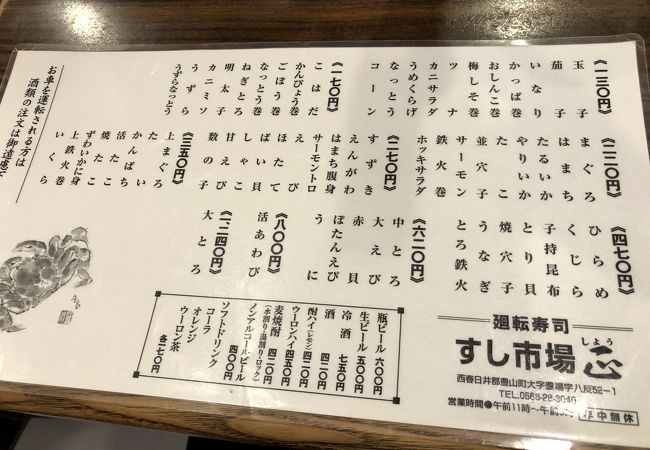 《一三〇円》
玉子
茄子
いなり
かっぱ巻
おしんこ巻
梅しそ巻
ツナ
カニサラダ
うめくらげ
なっとう
コーン
《一七〇円》
こはだ
かんぴょう巻
ごぼう巻
なっとう巻
ねぎとろ
明太子
カニミソ
うずら
うずらなっとう
《二二〇円》
まぐろ
はまち
たるいか
やりいか
たこ
並穴子
サーモン
鉄火巻
ホッキサラダ
《二七〇円》
すずき
えんがわ
はまち腹身
サーモントロ
えび
ほたて
ばい貝
しゃこ
甘えび
数の子
《三五〇円》
上まぐろ
たい
かんぱち
活たこ
焼たこ
ずわいかに身
上鉄火巻
いくら
《四七〇円》
ひらめ
くじら
子持昆布
とり貝
焼穴子
うなぎ
とろ鉄火
《六二〇円》
中とろ
大えび
赤貝
ぼたんえび
うに
《八〇〇円》
活あわび
《一二四〇円》
大とろ
お車を運転される方は
酒類の注文は御遠慮
瓶ビール 六〇〇円
生ビール 五〇〇円
冷酒 七五〇円
酒 四二〇円
酎ハイ(レモン) 四二〇円
ウーロンハイ 四五〇円
麦焼酎 四二〇円
(水割り・湯割り・ロック)
ノンアルコールビール 四〇〇円
ソフトドリンク
コーラ
オレンジ
ウーロン茶
各二七〇円
廻転寿司
すし市場
しょう
西春日井郡豊山町大字豊場字八反52−1
TEL.0568-22-3046
営業時間●午前11時〜午前
年中無休